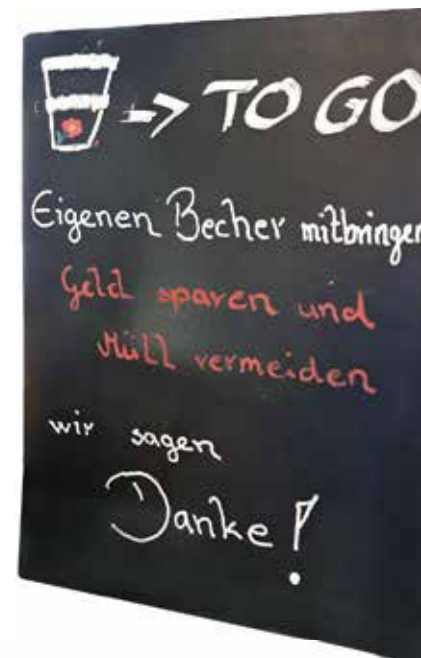 -> TO GO
Eigenen Becher mitbringen
Geld sparen und
Müll vermeiden
wir sagen
Danke!